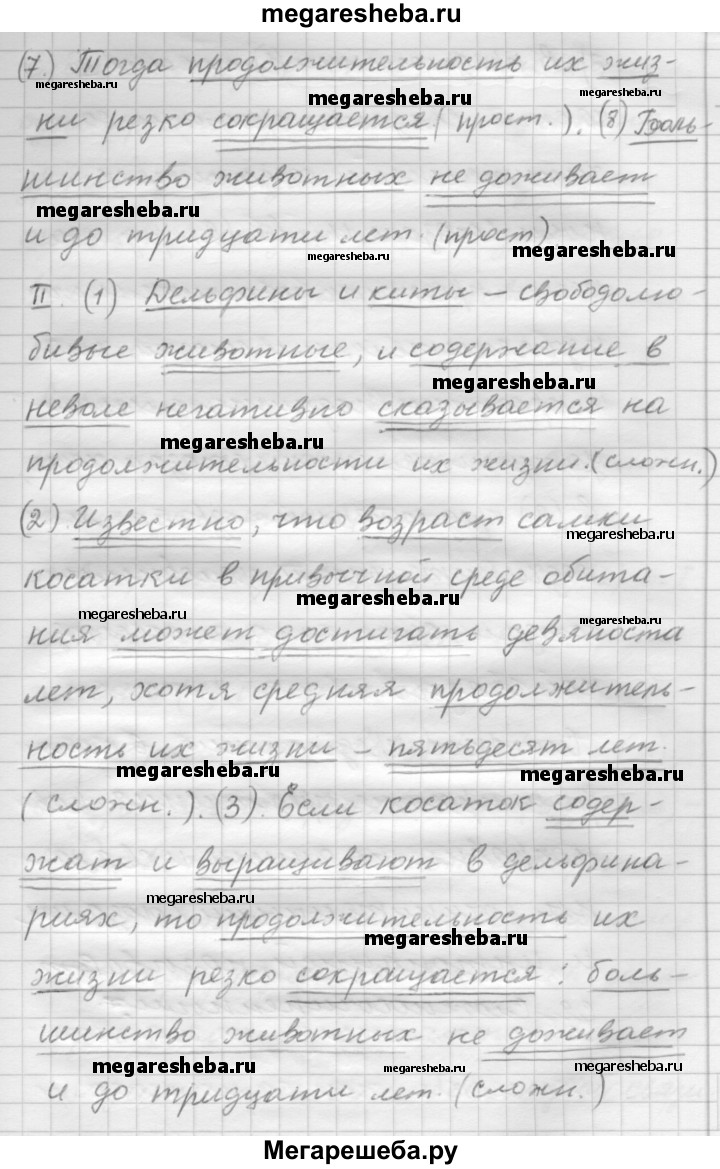 megaresheba.ru
(7.) Тогда продолжительность их жиз-
megaresheba.ru
megaresheba.ru
megaresheba.ru
ни резко сокращается (прост.). (8) Боль-
шинство животных не доживает
megaresheba.ru
и до тридцати лет. (прост)
megaresheba.ru
megaresheba.ru
II. (1) Дельфины и киты – свободолю-
бивые животные, и содержание в
megaresheba.ru
неволе негативно сказывается на
megaresheba.ru
продолжительности их жизни. (сложн.)
(2) Известно, что возраст самки
megaresheba.ru
косатки в привычной среде обита-
megaresheba.ru
megaresheba.ru
ния может достигать девяноста
megaresheba.ru
лет, хотя средняя продолжитель-
ность их жизни – пятьдесят лет.
megaresheba.ru
megaresheba.ru
(сложн.). (3). Если косаток содер-
жат и выращивают в дельфина-
megaresheba.ru
риях, то продолжительность их
megaresheba.ru
жизни резко сокращается: боль-
шинство животных не доживает
megaresheba.ru
megaresheba.ru
megaresheba.ru
и до тридцати лет. (сложн.)
Мегарешеба.ру